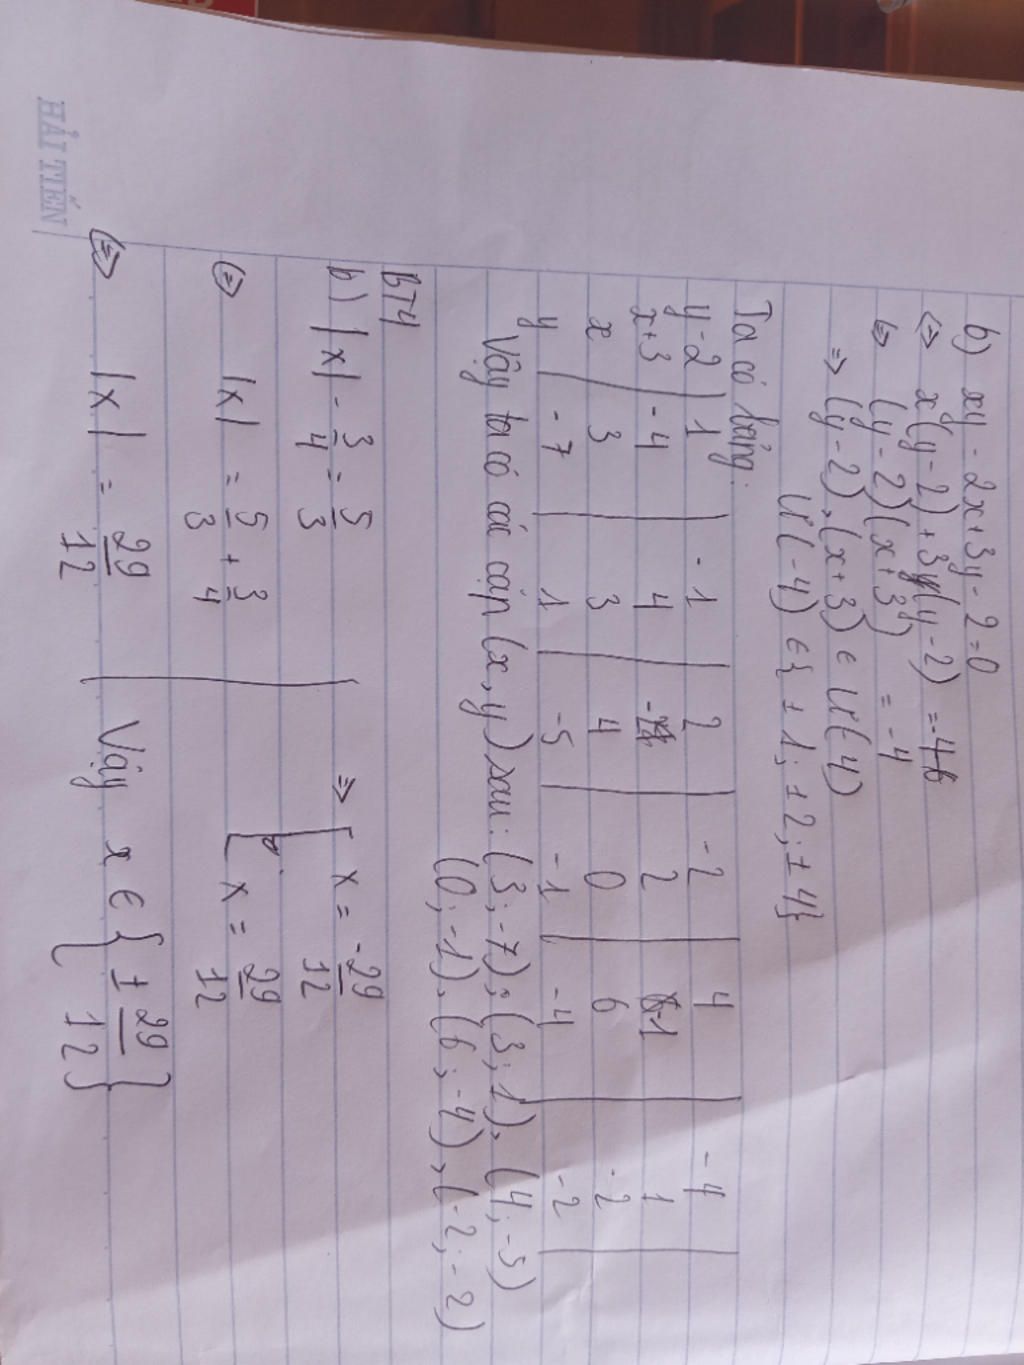 HẢI TIẾN
b) xy - 2x + 3y - 2 = 0
<=> x(y-2) + 3(y-2) = -4
<=> (y-2)(x+3) = -4
=> (y-2), (x+3) ∈ Ư(4)
Ư(-4) ∈ { ±1; ±2; ±4}
Ta có bảng:
y-2 | 1 | -1 | 2 | -2 | 4 | -4
x+3 | -4 | 4 | -2 | 2 | -1 | 1
x | 3 | 3 | 4 | 0 | 6 | -2
y | -7 | 1 | -5 | -1 | -4 | -2
Vậy ta có các cặp (x, y) sau: (3; -7); (3; 1), (4; -5)
(0; -1), (6; -4), (-2; -2)
BT4
b) |x| - 3/4 = 5/3
<=> |x| = 5/3 + 3/4
<=> |x| = 29/12
=> [ x = -29/12
x = 29/12
Vậy x ∈ { ± 29/12 }